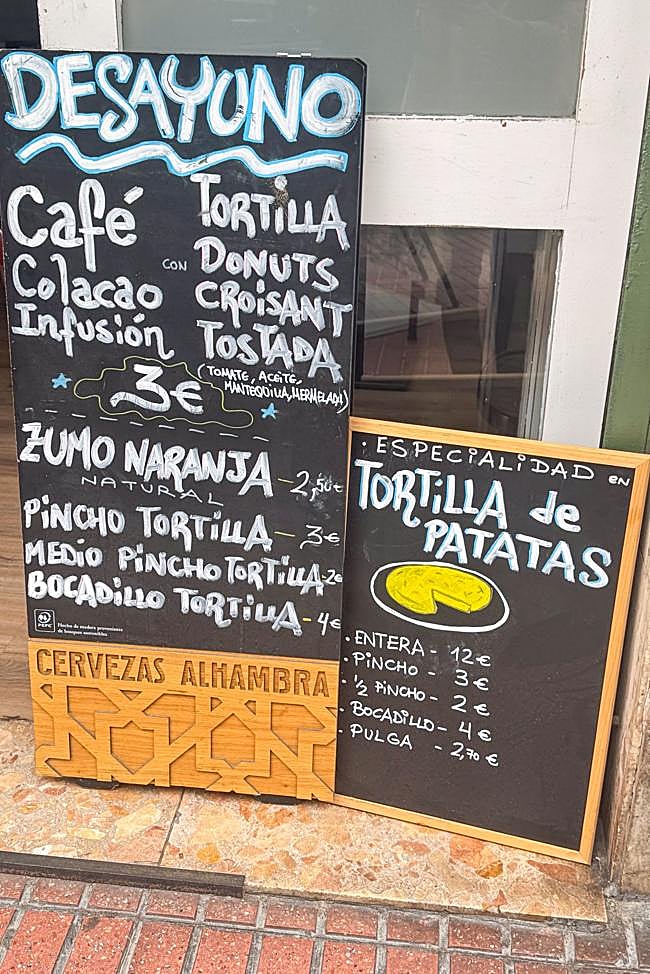 DESAYUNO
Café
Colacao
Infusión
CON
TORTILLA
DONUTS
CROISANT
TOSTADA
(TOMATE, ACEITE,
MANTEQUILLA, MERMELADA)
3€
ZUMO NARANJA - 2,50€
NATURAL
PINCHO TORTILLA - 3€
MEDIO PINCHO TORTILLA - 2€
BOCADILLO TORTILLA - 4€
PEFC
Hecho de madera proveniente
de bosques sostenibles
CERVEZAS ALHAMBRA
· ESPECIALIDAD EN
TORTILLA de
PATATAS
· ENTERA - 12€
· PINCHO - 3€
· 1/2 PINCHO - 2€
· BOCADILLO - 4€
· PULGA - 2,70€